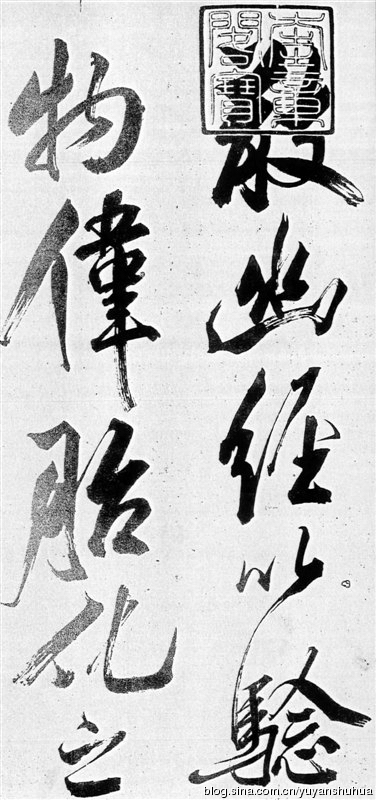 奎章閣寶
散幽經以騐
物偉胎化之
blog.sina.com.cn/yuyanshuhua